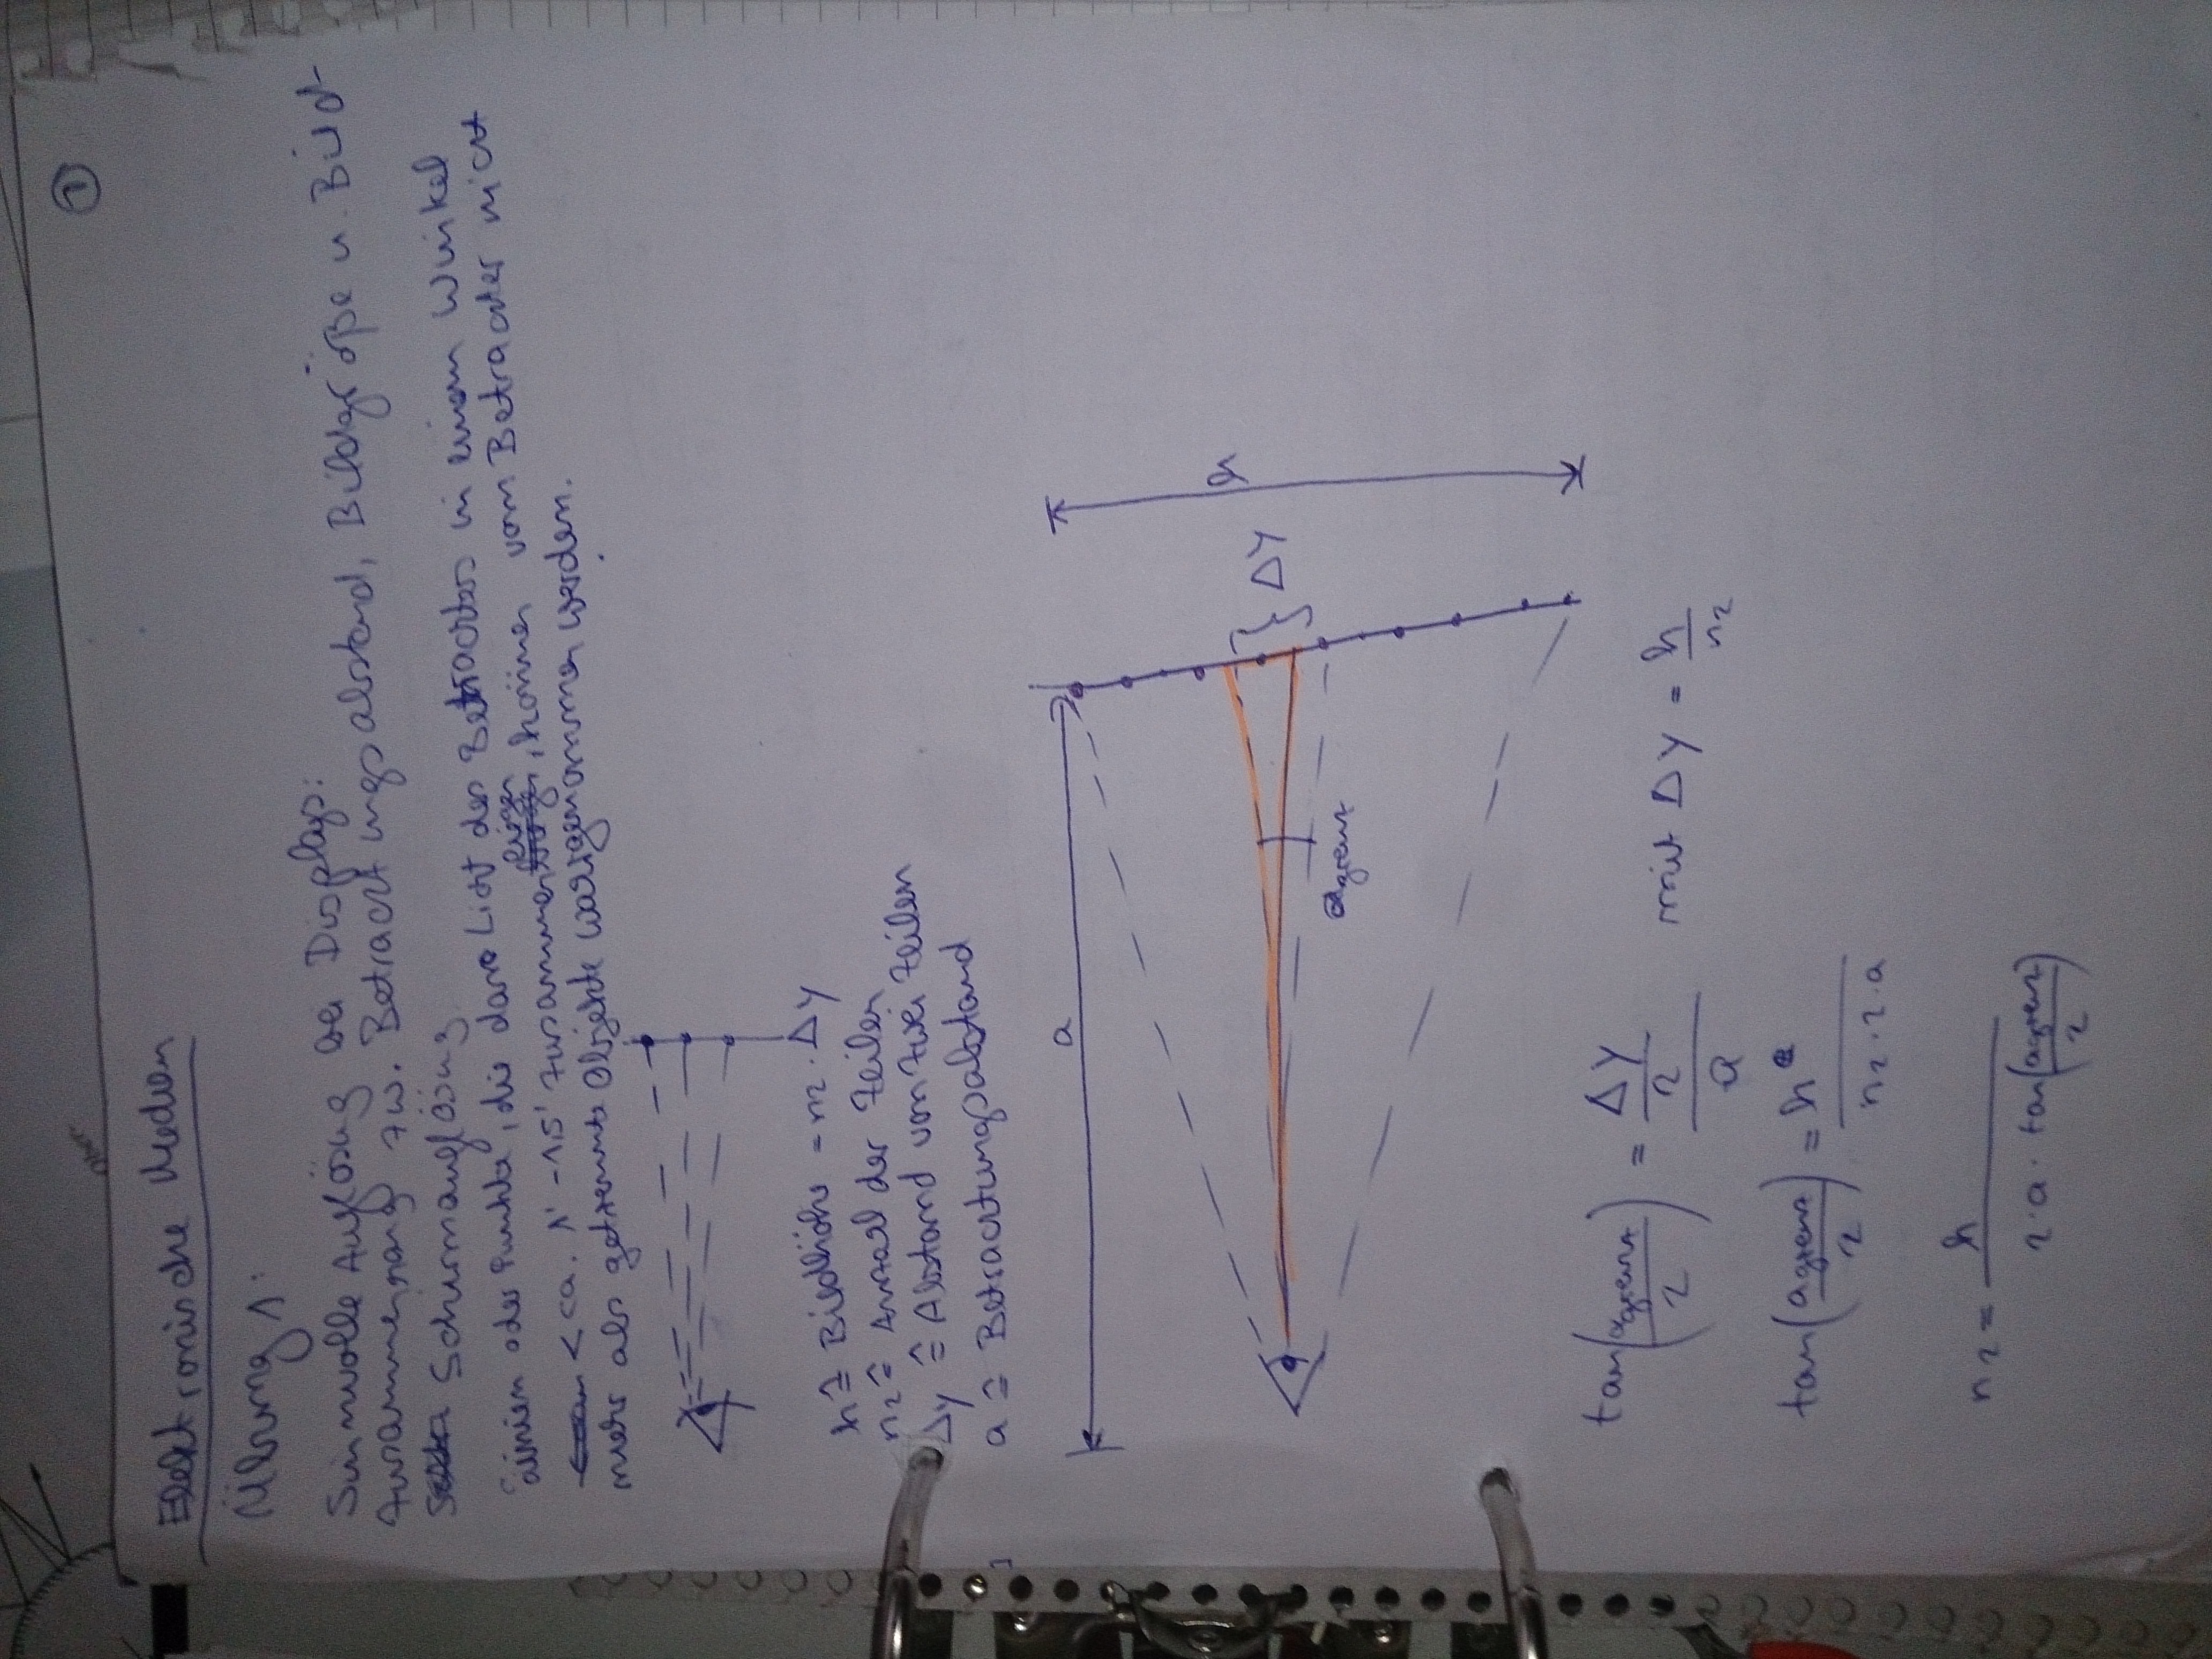 ①
Elektronische Medien
Übung 1:
Sinnvolle Auflösung bei Displays:
Zusammenhang zw. Betrachtungsabstand, Bildgröße u. Bild-
Schirmauflösung
Linien oder Punkte, die dass Licht des Betrachters in einem Winkel
< ca. 1' - 1,5' zusammen liegen, können vom Betrachter nicht
mehr als getrennte Objekte wahrgenommen werden.
h ≙ Bildhöhe = nz · ΔY
nz ≙ Anzahl der Zeilen
ΔY ≙ Abstand von zwei Zeilen
a ≙ Betrachtungsabstand
a
h
ΔY
αgrenz
tan(αgrenz/2) = (ΔY/2)/a mit ΔY = h/nz
tan(αgrenz/2) = h/(nz · 2 · a)
nz = h/(2 · a · tan(αgrenz/2))